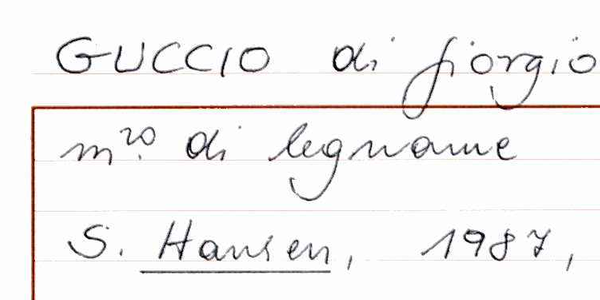 GUCCIO di fiorgio
m.ro di legname
S. Hansen, 1987,